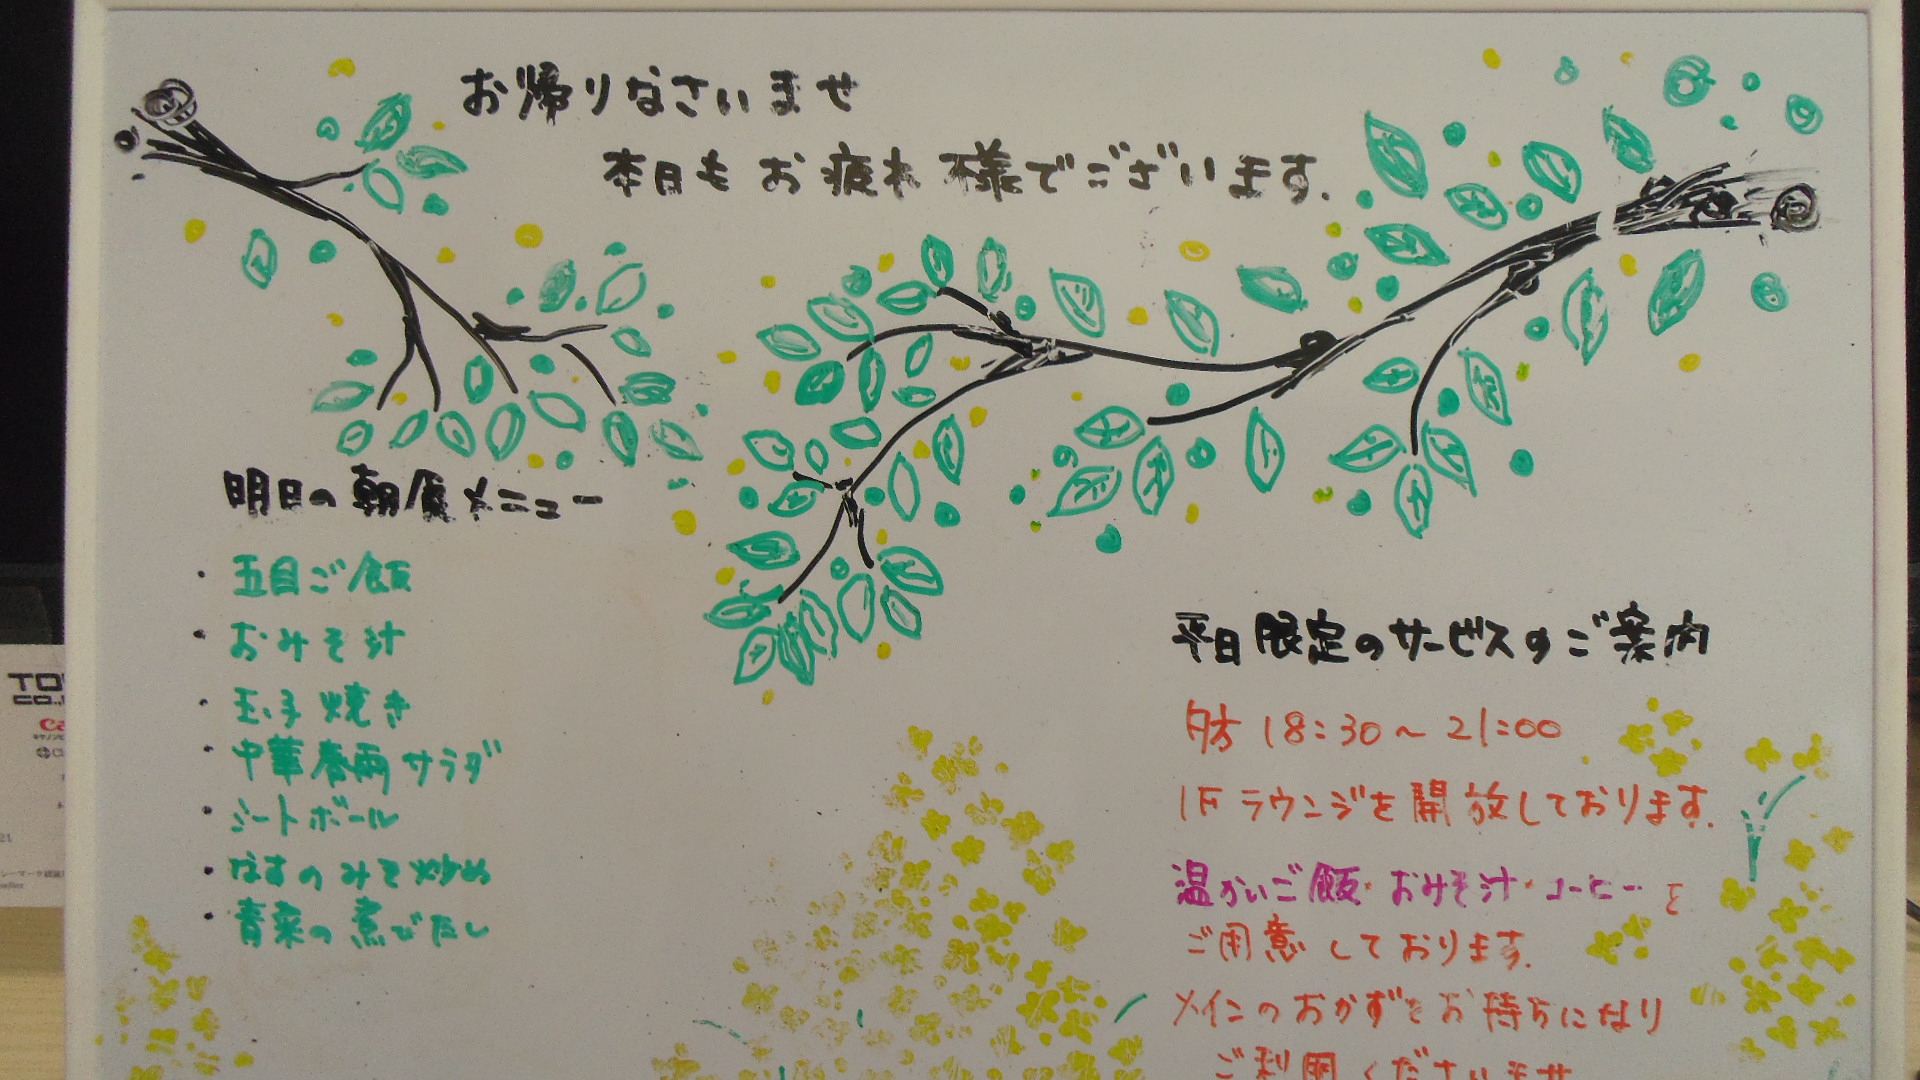 お帰りなさいませ
本日もお疲れ様でございます.
明日の朝食メニュー
・五目ご飯
・おみそ汁
・玉子焼き
・中華春雨サラダ
・ミートボール
・なすのみそ炒め
・青菜の煮びたし
平日限定のサービスのご案内
夕方 18:30～21:00
1Fラウンジを開放しております.
温かいご飯・おみそ汁・コーヒーを
ご用意しております.
メインのおかずをお持ちになり
ご利用くださいませ